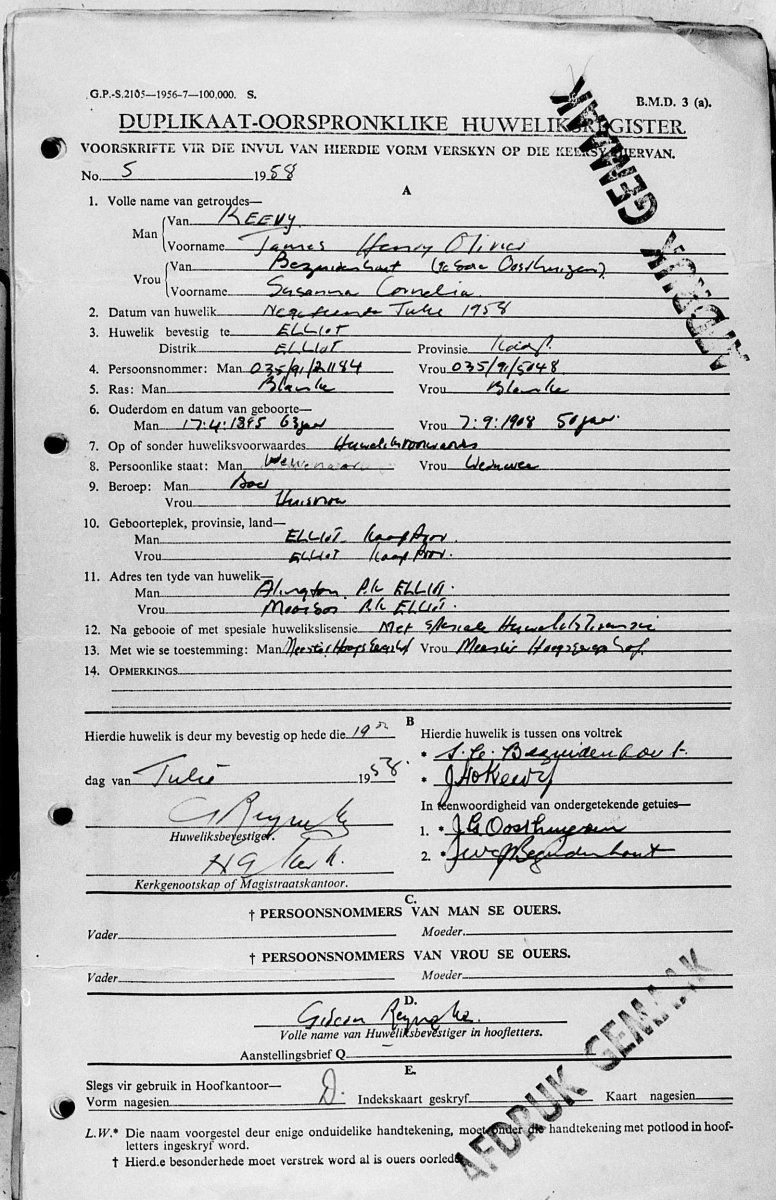 G.P.-S.2105—1956-7—100,000. S.
B.M.D. 3 (a).
DUPLIKAAT-OORSPRONKLIKE HUWELIKSREGISTER
VOORSKRIFTE VIR DIE INVUL VAN HIERDIE VORM VERSKYN OP DIE KEERSY HIERVAN.
AFDRUK GEMAAK
No. 5 1958
A
1. Volle name van getroudes—
Man Van KEEVY.
Voorname James Henry Olivier
Vrou Van Bezuidenhout (gebore Oosthuizen)
Voorname Susanna Cornelia
2. Datum van huwelik Negentiende Julie 1958
3. Huwelik bevestig te ELLIOT
Distrik ELLIOT Provinsie Kaap.
4. Persoonsnommer: Man 035/91/21184 Vrou 035/91/5048
5. Ras: Man Blanke Vrou Blanke
6. Ouderdom en datum van geboorte—
Man 17:4:1895 63 jaar Vrou 7:9:1908 50 jaar.
7. Op of sonder huweliksvoorwaardes Huweliksvoorwaardes
8. Persoonlike staat: Man Wewenaar Vrou Weduwee
9. Beroep: Man Boer
Vrou Huisvrou
10. Geboorteplek, provinsie, land—
Man ELLIOT Kaap Prov.
Vrou ELLIOT Kaap Prov.
11. Adres ten tyde van huwelik—
Man P.k ELLIOT.
Vrou P.k ELLIOT.
12. Na gebooie of met spesiale huwelikslisensie Met spesiale Huwelikslisensie
13. Met wie se toestemming: Man Meester Hooggeregshof Vrou Meester Hooggeregshof.
14. OPMERKINGS
B
Hierdie huwelik is deur my bevestig op hede die 19de
dag van Julie 1958.
G Reyneke
Huweliksbevestiger.
N G Kerk.
Kerkgenootskap of Magistraatskantoor.
Hierdie huwelik is tussen ons voltrek
* S. C. Bezuidenhout.
* J H O Keevy
In teenwoordigheid van ondergetekende getuies—
1. * J G Oosthuizen
2. * Bezuidenhout
C.
† PERSOONSNOMMERS VAN MAN SE OUERS.
Vader Moeder
† PERSOONSNOMMERS VAN VROU SE OUERS.
Vader Moeder
D.
Gideon Reyneke.
Volle name van Huweliksbevestiger in hoofletters.
Aanstellingsbrief Q
E.
Slegs vir gebruik in Hoofkantoor—
Vorm nagesien D. Indekskaart geskryf Kaart nagesien
AFDRUK GEMAAK
L.W.* Die naam voorgestel deur enige onduidelike handtekening, moet onder die handtekening met potlood in hoof-
letters ingeskryf word.
† Hierd.e besonderhede moet verstrek word al is ouers oorlede.